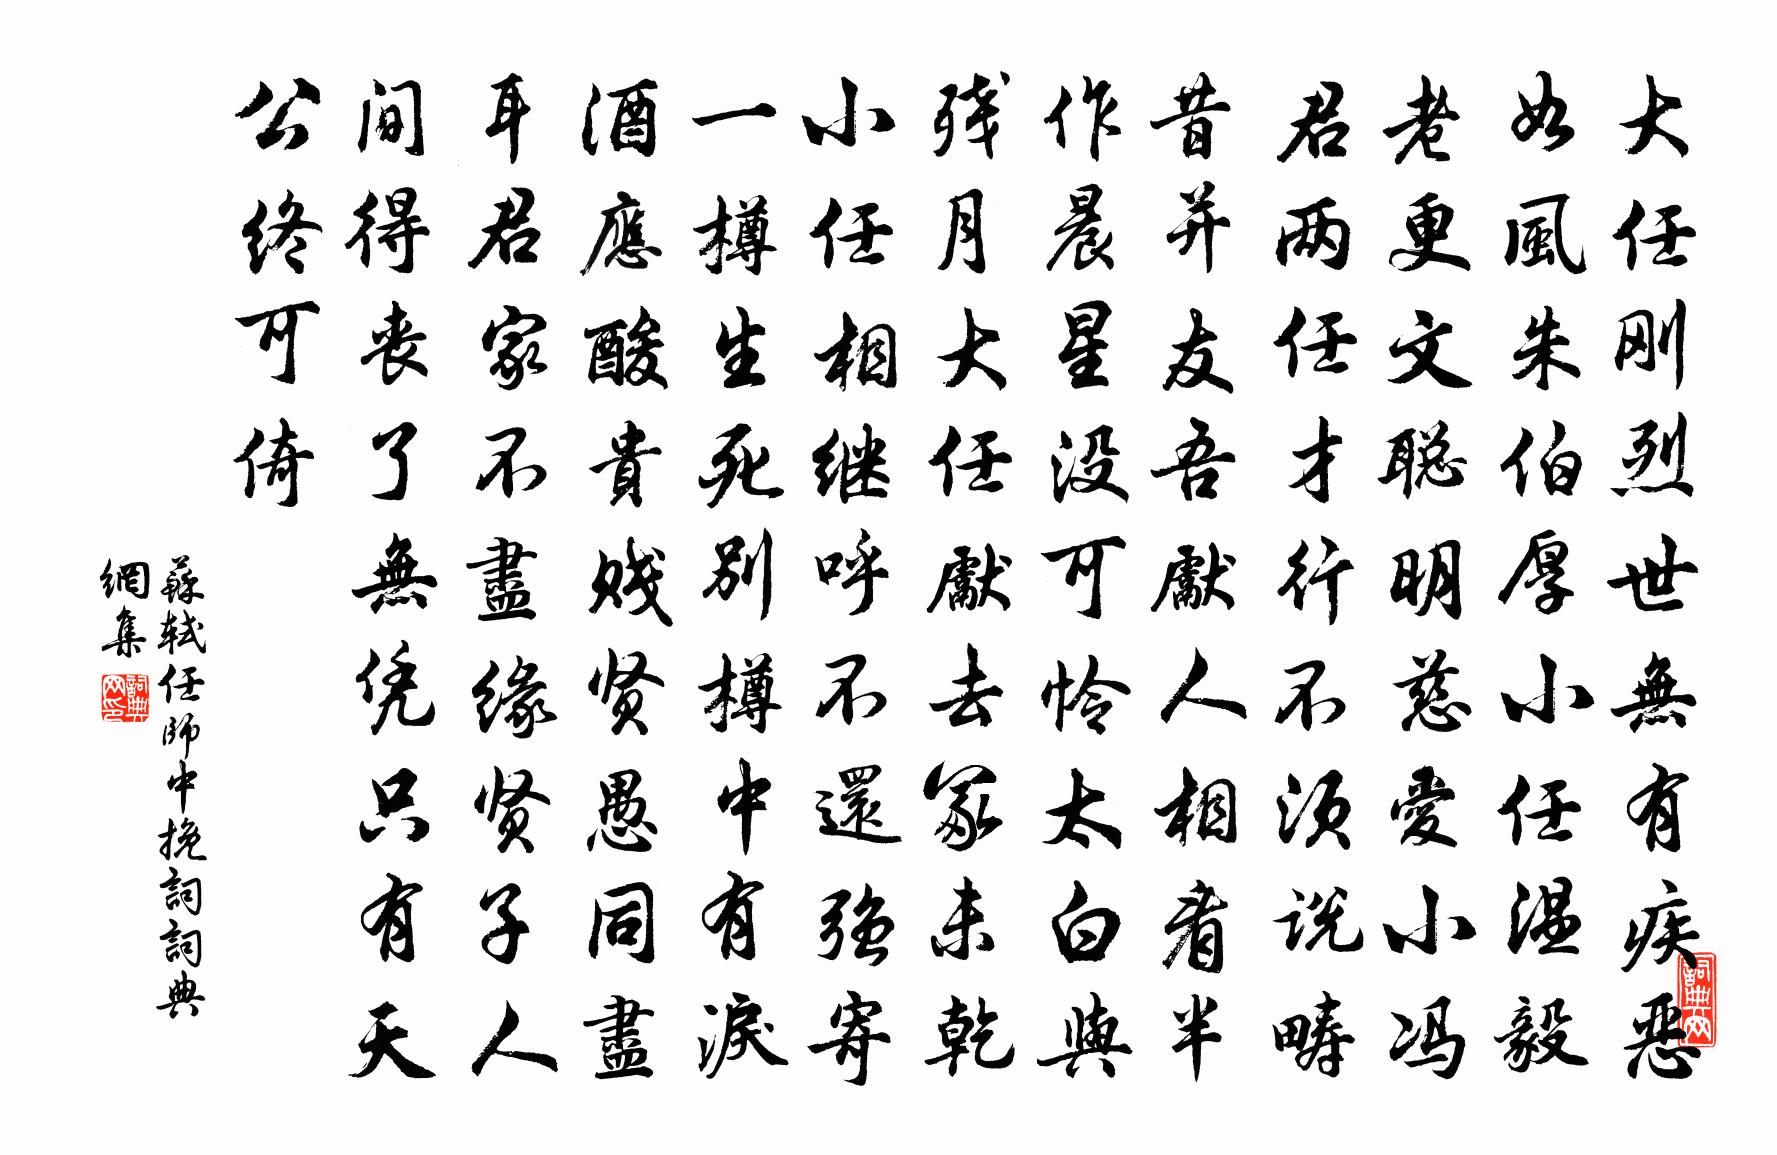 大任刚烈世無有疾恶
如風朱伯厚小任温毅
老更文聪明慈愛小冯
君两任才行不须说畴
昔并友吾獻人相看半
作晨星没可怜太白與
残月大任獻去冢未乾
小任相继呼不還强寄
一樽生死别樽中有淚
酒應酸貴贱贤愚同盡
耳君家不盡缘贤子人
间得丧了無凭只有天
公终可倚
蘇轼任師中挽詞詞典
網集